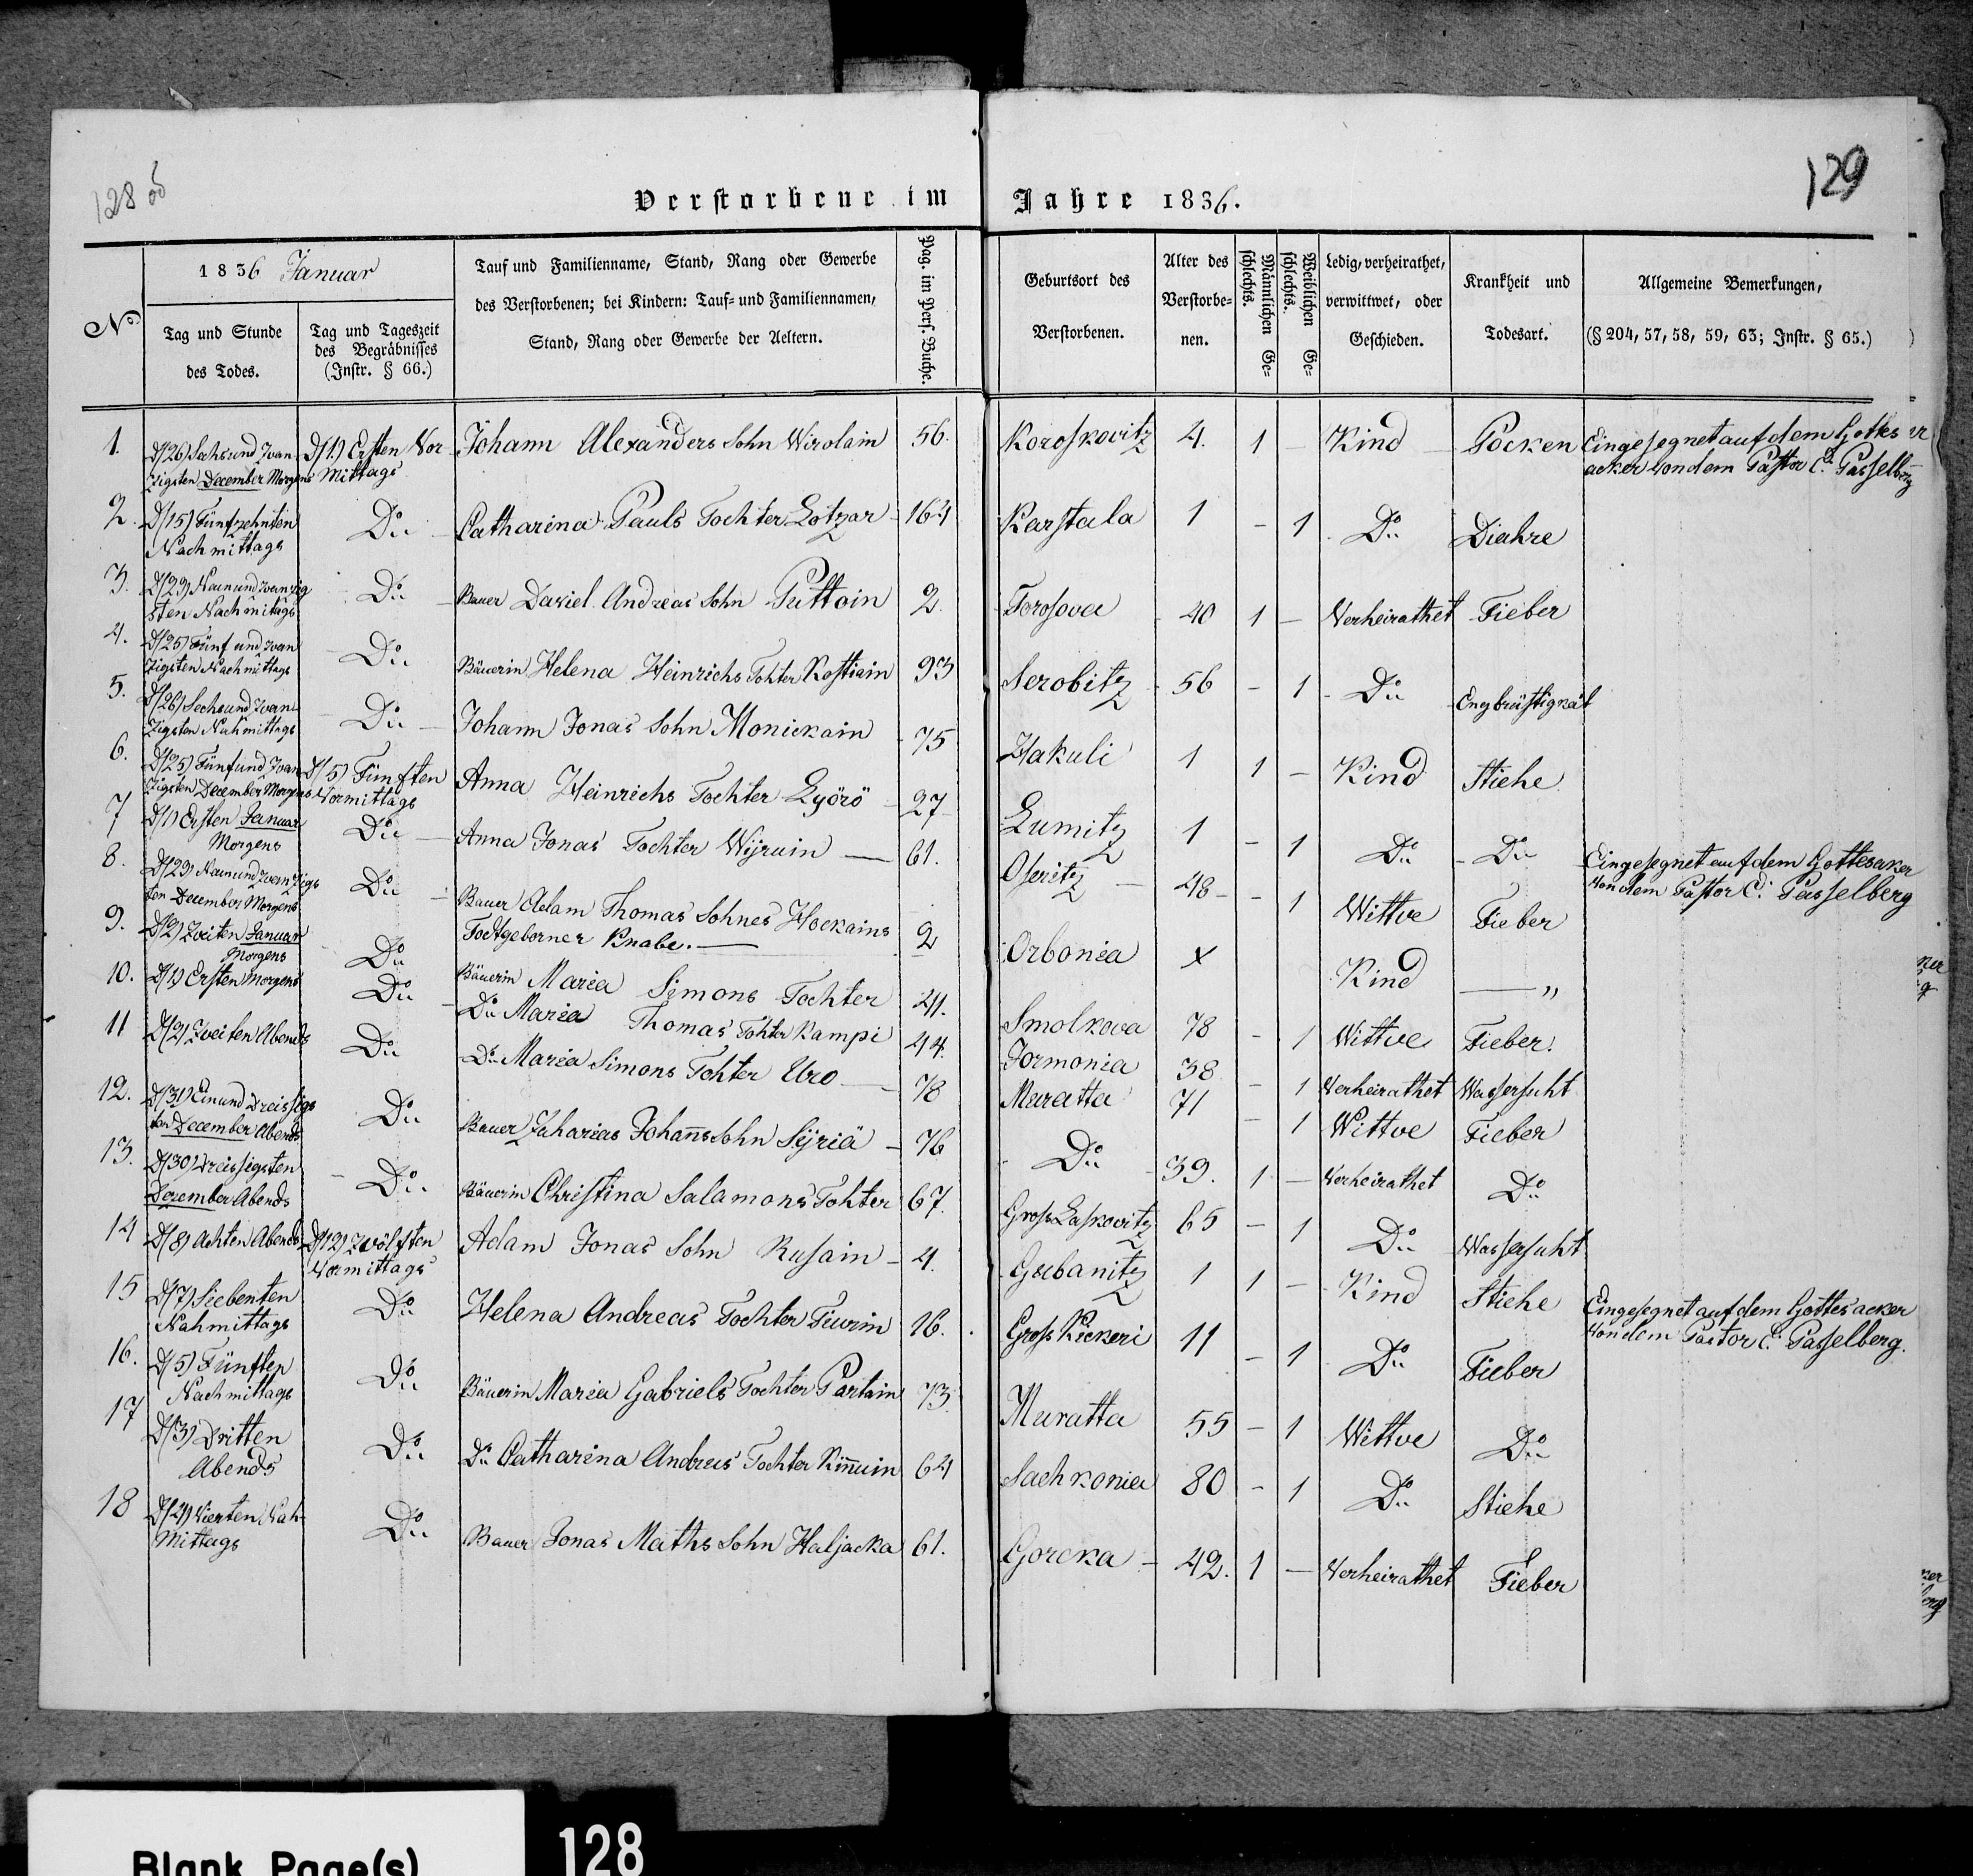 128 οб
129
Verstorbene im Jahre 1836.
No
1836 Januar
Tag und Stunde
des Todes.
Tag und Tageszeit
des Begräbnisses
(Instr. § 66.)
Tauf und Familienname, Stand, Rang oder Gewerbe
des Verstorbenen; bei Kindern: Tauf- und Familiennamen,
Stand, Rang oder Gewerbe der Aeltern.
Pag. im Pers. Buche.
Geburtsort des
Verstorbenen.
Alter des
Verstorbe-
nen.
Männlichen Ge-
schlechts.
Weiblichen Ge-
schlechts.
Ledig, verheirathet,
verwittwet, oder
Geschieden.
Krankheit und
Todesart.
Allgemeine Bemerkungen,
(§ 204, 57, 58, 59, 63; Instr. § 65.)
1. D/26) Sechsund Zwan- D/1) Ersten Vor- Johann Alexanders Sohn Wirolain 56. Koroskovitz 4. 1 – Kind Pocken Eingesegnet auf dem Gottes
zigsten December Morgens Mittags acker Von dem Pastor C. Passelberg
2. D/15) Fünfzehnten Do Catharina Pauls Tochter Lotzar 164 Karstala 1 – 1 Do Diahre
Nachmittags
3. D/29) Neunundzwanzig Do Bauer Daviel Andreas Sohn Puttoin 2. Torosova 40 1 – Verheirathet Fieber
sten Nachmitags
4. D/25) Fünf und zwan Do Bäuerin Helena Heinrichs Tohter Kostiain 93 Serobitz 56 – 1 Do Engbrüstigkät
zigsten Nachmittags
5. D/26) Sechsund Zwan Do Johann Jonas Sohn Monickain 75 Hakuli 1 1 – Kind Stiche
zigsten Nahmittags
6. D/25) Fünfund Zwan D/5) Fünften Anna Heinrichs Tochter Lyörö 27 Lumitz 1 – 1 Do Do
zigsten December Morgens Vormittags
7 D/1) Ersten Januar Do Anna Jonas Tochter Wijruin 61. Oseritz 48 – 1 Wittve Fieber Eingesegnet auf dem Gottesacker
Morgens Von dem Pastor C. Passelberg
8. D/29) Neunundzwanzigs Do Bauer Adam Thomas Sohnes Hockains 2 Orbonia x Kind – "
ten December Morgens Todtgeborner Knabe.
9. D/2) Zveiten Januar Do Bäuerin Maria Simons Tochter 24. Smolkova 78 – 1 Wittve Fieber.
Morgens
10. D/1) Ersten Morgens Do Do Maria Thomas Tohter Kampi 44. Jormonia 38 – 1 Verheirathet Wassersuht
11 D/2) Zveiten Abends Do Do Maria Simons Tohter Uro 78 Muratta 71 – 1 Wittve Fieber
12. D/31) Einund Dreissigs Do Bauer Zaharias Johanns Sohn Sijriä 76 Do 39. 1 – Verheirathet Do
ten December Abends
13. D/30) Dreissigsten Do Bäuerin Christina Salamons Tohter 67. Gross Laskovitz 65 – 1 Do Wassersuht
Dezember Abends
14 D/8) Achten Abends D/12) Zvölften Adam Jonas Sohn Rusain 4. Gubanitz 1 1 – Kind Stiche Eingesegnet auf dem Gottes acker
Vormittags Von dem Pastor C. Passelberg.
15 D/7) Siebenten Do Helena Andreas Tochter Tiurin 16. Gross Kickeri 11 – 1 Do Fieber
Nahmittags
16. D/5) Fünften Do Bäuerin Maria Gabriels Tochter Partain 73. Muratta 55 – 1 Wittve Do
Nachmittags
17 D/3) Dritten Do Do Catharina Andreas Tochter Kinnuin 64 Sachkonia 80 – 1 Do Stiehe
Abends
18 D/4) Vierten Nah- Do Bauer Jonas Maths Sohn Haljacka 61. Gorcka 42. 1 – Verheirathet Fieber
Mittags
Blank Page(s)
128